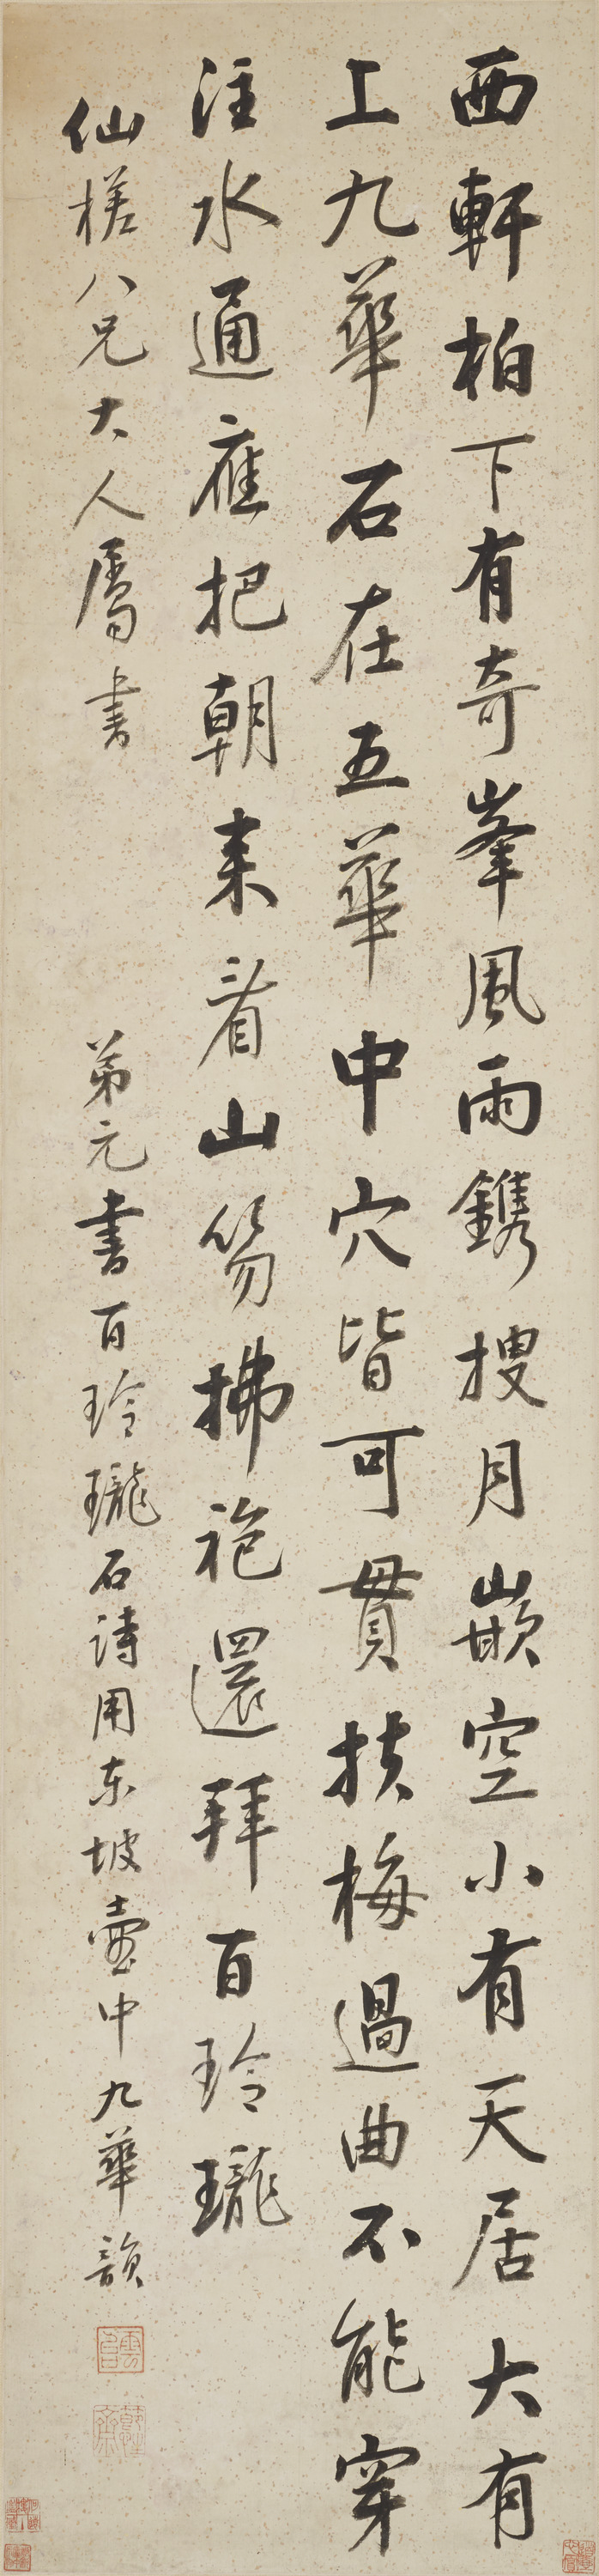 西軒柏下有奇峯風雨鐫搜月嵌空小有天居大有
上九華石在五華中穴皆可貫扶梅過曲不能穿
注水通應把朝來看山笏拂袍還拜百玲瓏
仙槎八兄大人屬書 弟元書百玲瓏石詩用東坡壺中九華韻